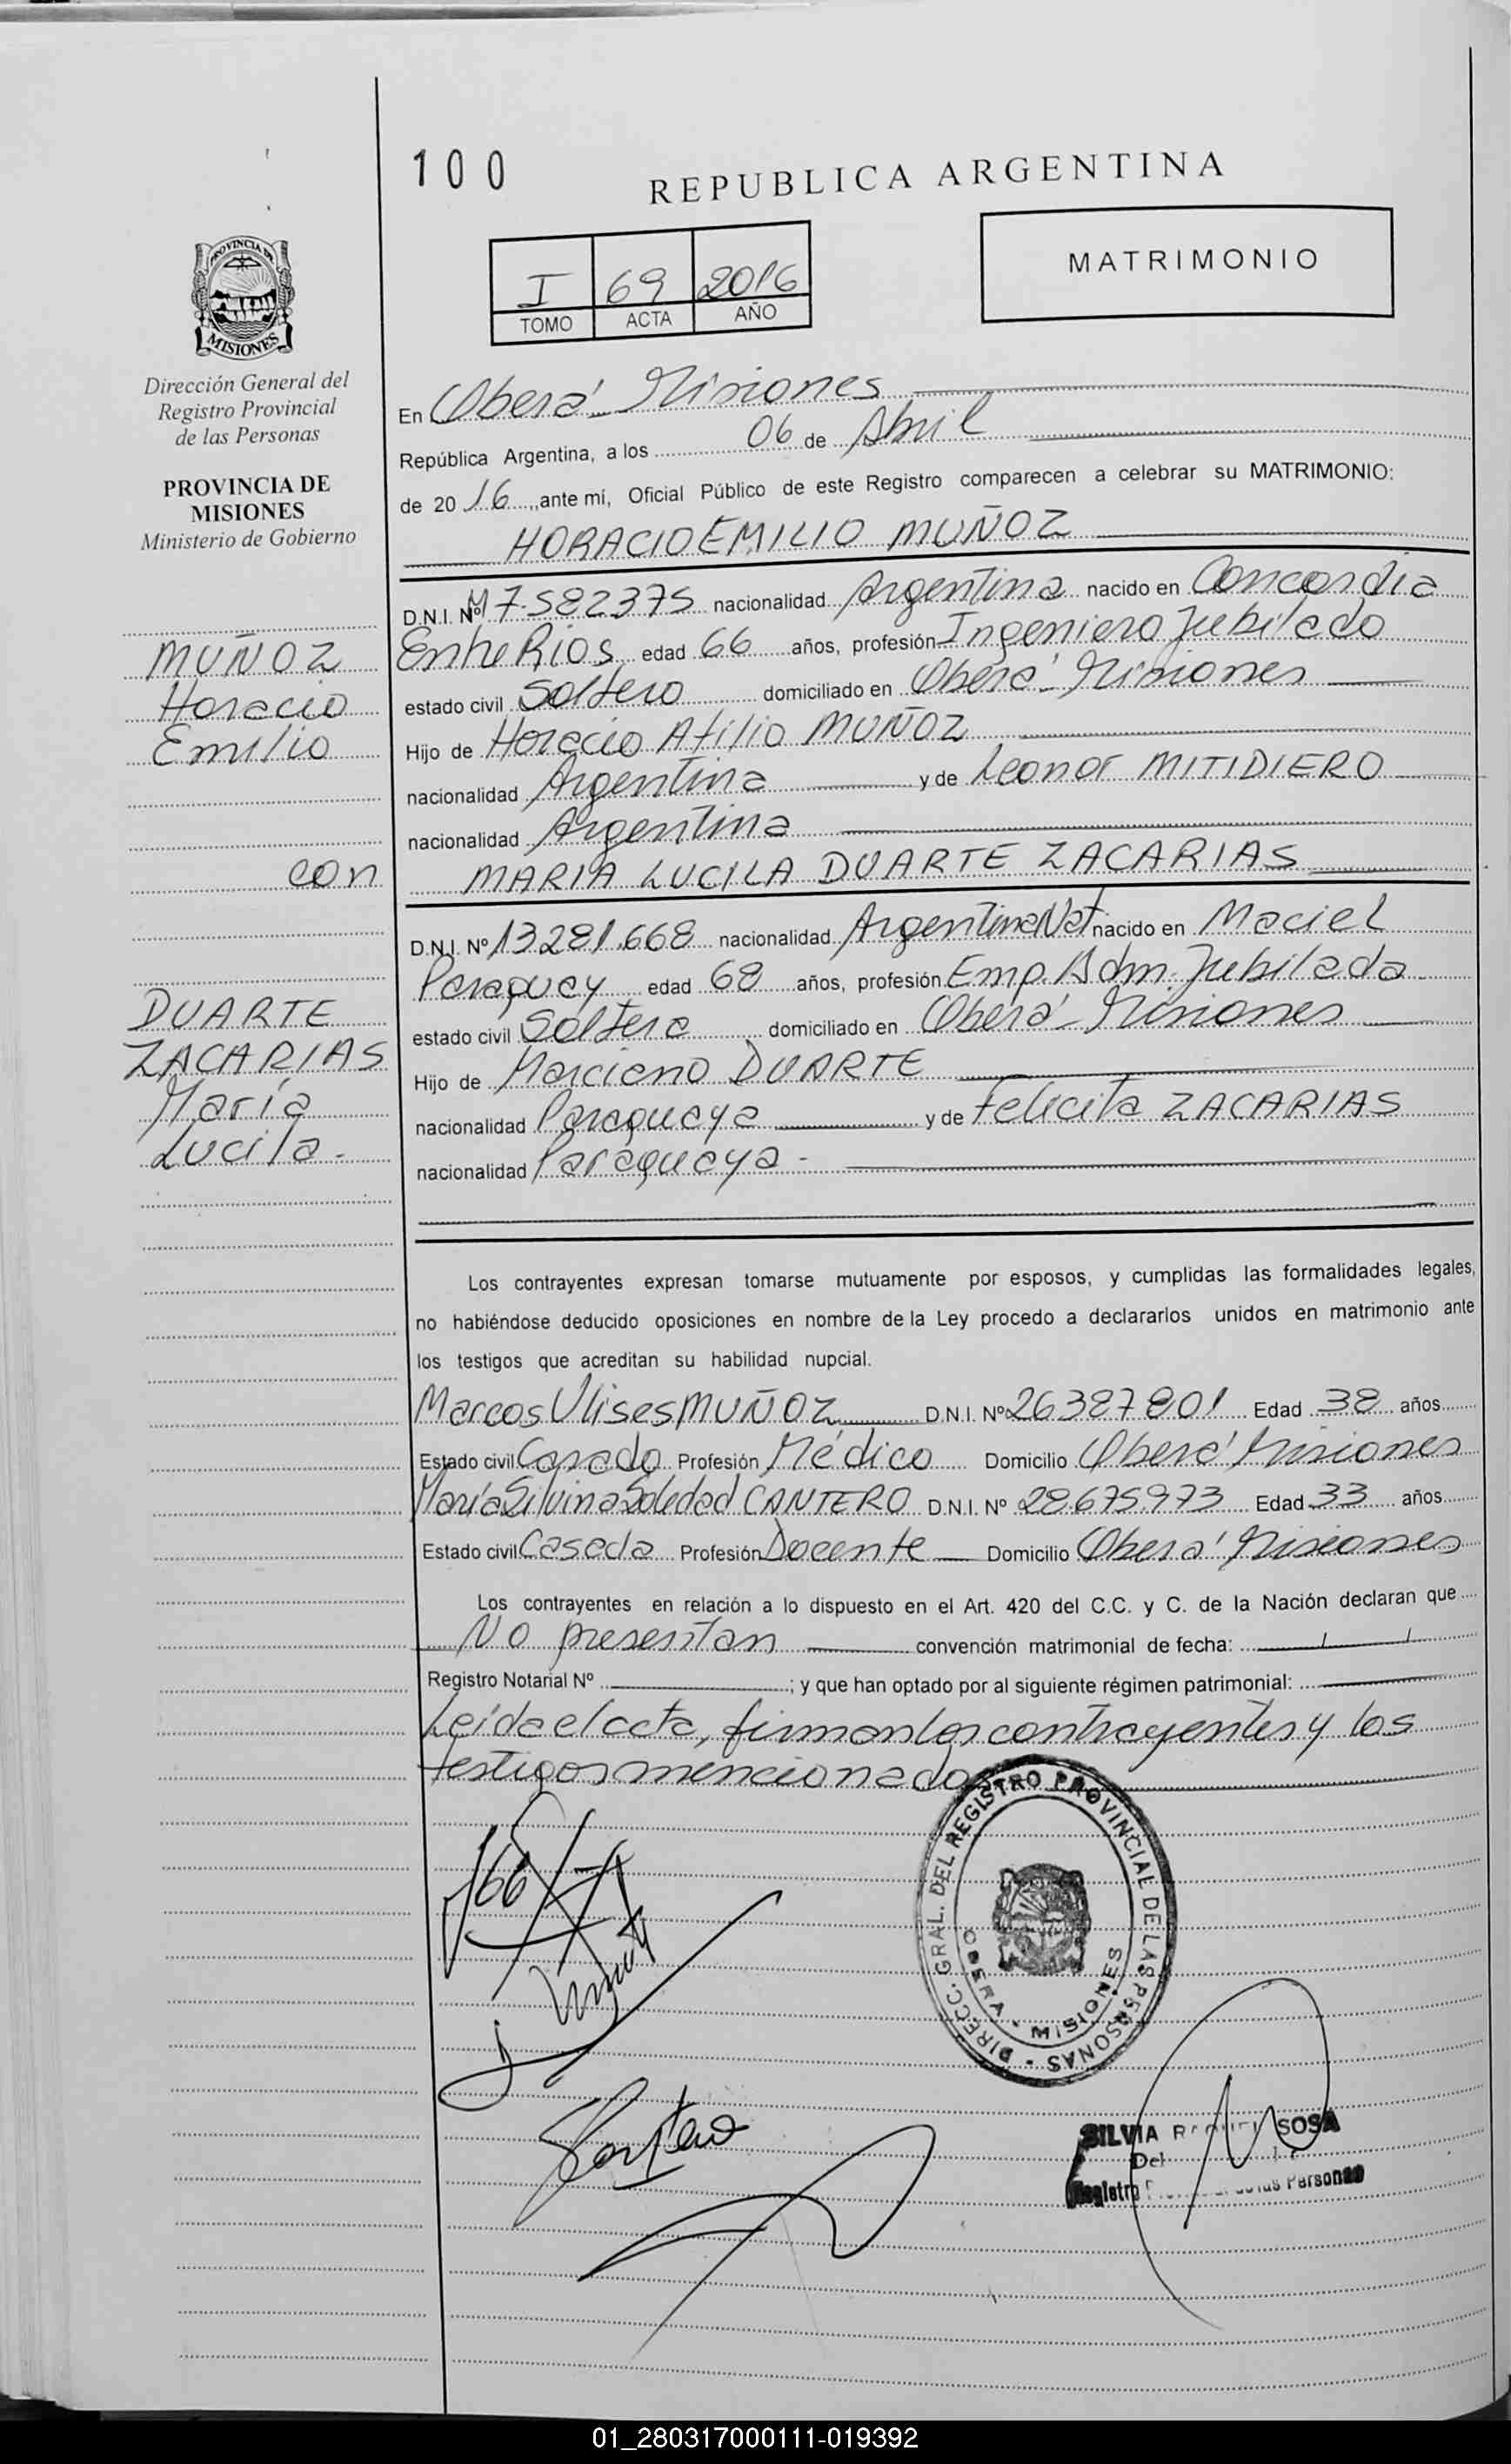 100
REPUBLICA ARGENTINA
I 69 2016
TOMO ACTA AÑO
MATRIMONIO
PROVINCIA DE
MISIONES
Dirección General del
Registro Provincial
de las Personas
PROVINCIA DE
MISIONES
Ministerio de Gobierno
MUÑOZ
Horacio
Emilio
con
DUARTE
ZACARIAS
María
Lucila.-
En Oberá - Misiones
República Argentina, a los 06 de Abril
de 20 16, ante mí, Oficial Público de este Registro comparecen a celebrar su MATRIMONIO:
HORACIO EMILIO MUÑOZ
D.N.I. Nº M7.582375 nacionalidad Argentina nacido en Concordia
Entre Rios edad 66 años, profesión Ingeniero Jubilado
estado civil Soltero domiciliado en Oberá - Misiones
Hijo de Horacio Atilio MUÑOZ
nacionalidad Argentina y de Leonor MITIDIERO
nacionalidad Argentina
MARIA LUCILA DUARTE ZACARIAS
D.N.I. Nº 13.281.668 nacionalidad Argentina Nat nacido en Maciel
Paraguay edad 68 años, profesión Emp. Adm. Jubilada
estado civil Soltera domiciliado en Oberá - Misiones
Hijo de Marciano DUARTE
nacionalidad Paraguaya y de Felicita ZACARIAS
nacionalidad Paraguaya -
Los contrayentes expresan tomarse mutuamente por esposos, y cumplidas las formalidades legales,
no habiéndose deducido oposiciones en nombre de la Ley procedo a declararlos unidos en matrimonio ante
los testigos que acreditan su habilidad nupcial.
Marcos Ulises MUÑOZ D.N.I. Nº 26387801 Edad 38 años
Estado civil Casado Profesión Médico Domicilio Oberá Misiones
María Silvina Soledad CANTERO D.N.I. Nº 28.675.973 Edad 33 años
Estado civil Casada Profesión Docente Domicilio Oberá Misiones
Los contrayentes en relación a lo dispuesto en el Art. 420 del C.C. y C. de la Nación declaran que
No presentan convención matrimonial de fecha: / /
Registro Notarial Nº ; y que han optado por al siguiente régimen patrimonial:
Leída el acta, firman los contrayentes y los
testigos mencionados
DIRECC. GRAL. DEL REGISTRO PROVINCIAL DE LAS PERSONAS -
OBERA - MISIONES
SILVIA SOSA
Del
Registro Personas
01_280317000111-019392